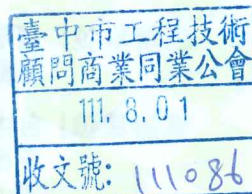 臺中市工程技術
顧問商業同業公會
111. 8. 01
收文號: 111086